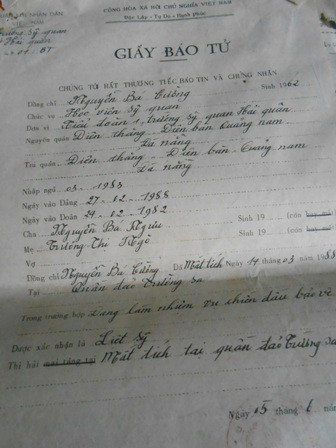 CỘNG HÒA XÃ HỘI CHỦ NGHĨA VIỆT NAM
Độc Lập - Tự Do - Hạnh Phúc
ĐỘI NHÂN DÂN
Trường Sỹ quan
Hải quân
BT
GIẤY BÁO TỬ
CHÚNG TÔI RẤT THƯƠNG TIẾC BÁO TIN VÀ CHỨNG NHẬN
Đồng chí Nguyễn Bá Cường Sinh 1962
Chức vụ Học viên sỹ quan
Đơn vị Tiểu đoàn 1, trường Sỹ quan Hải quân
Nguyên quán Điện thắng - Điện bàn Quang nam
Đà năng
Trú quán Điện thắng - Điện bàn - Quang nam
Đà năng
Nhập ngũ 03 - 1983
Ngày vào Đảng 27 - 02 - 1988
Ngày vào Đoàn 24 - 02 - 1982
Cha Nguyễn Bá Sinh 19 (còn
Mẹ Trương Thị Ngò Sinh 19 (còn
Vợ
Đồng chí Nguyễn Bá Cường Đã Mất tích Ngày 14 tháng 03 1988
Tại Quần đảo Trường Sa
Trong trường hợp Đang làm nhiệm vụ chiến đấu bảo vệ
Được xác nhận là Liệt sỹ
Thi hài mai táng tại Mất tích tại quần đảo Trường Sa
Ngày 05 tháng 6